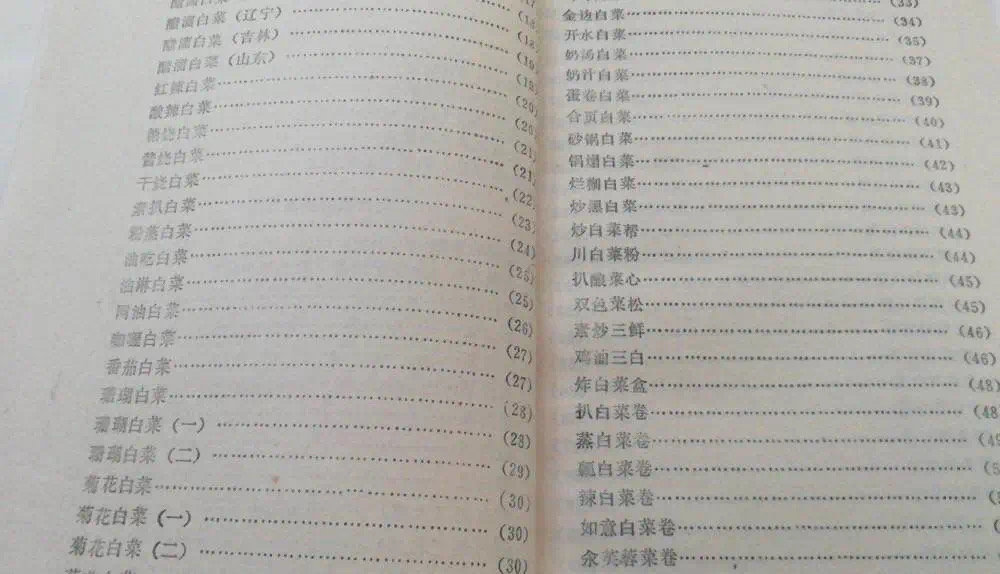 醋溜白菜（辽宁）……(18)
醋溜白菜（吉林）……(19)
醋溜白菜（山东）……(19)
红辣白菜……(20)
酸辣白菜……(20)
糖烧白菜……(21)
酱烧白菜……(21)
干烧白菜……(22)
素扒白菜……(23)
粉蒸白菜……(24)
油吃白菜……(25)
油淋白菜……(25)
网油白菜……(26)
咖喱白菜……(27)
番茄白菜……(27)
珊瑚白菜……(28)
珊瑚白菜（一）……(28)
珊瑚白菜（二）……(29)
菊花白菜……(30)
菊花白菜（一）……(30)
菊花白菜（二）……(30)
(33)
金边白菜……(34)
开水白菜……(35)
奶汤白菜……(37)
奶汁白菜……(38)
蛋卷白菜……(39)
合页白菜……(40)
砂锅白菜……(41)
锅塌白菜……(42)
烂糊白菜……(43)
炒黑白菜……(43)
炒白菜帮……(44)
川白菜粉……(44)
扒酿菜心……(45)
双色菜松……(45)
素炒三鲜……(46)
鸡油三白……(46)
炸白菜盒……(48)
扒白菜卷……(48
蒸白菜卷……(49
瓤白菜卷……
辣白菜卷……
如意白菜卷……
氽芙蓉菜卷……